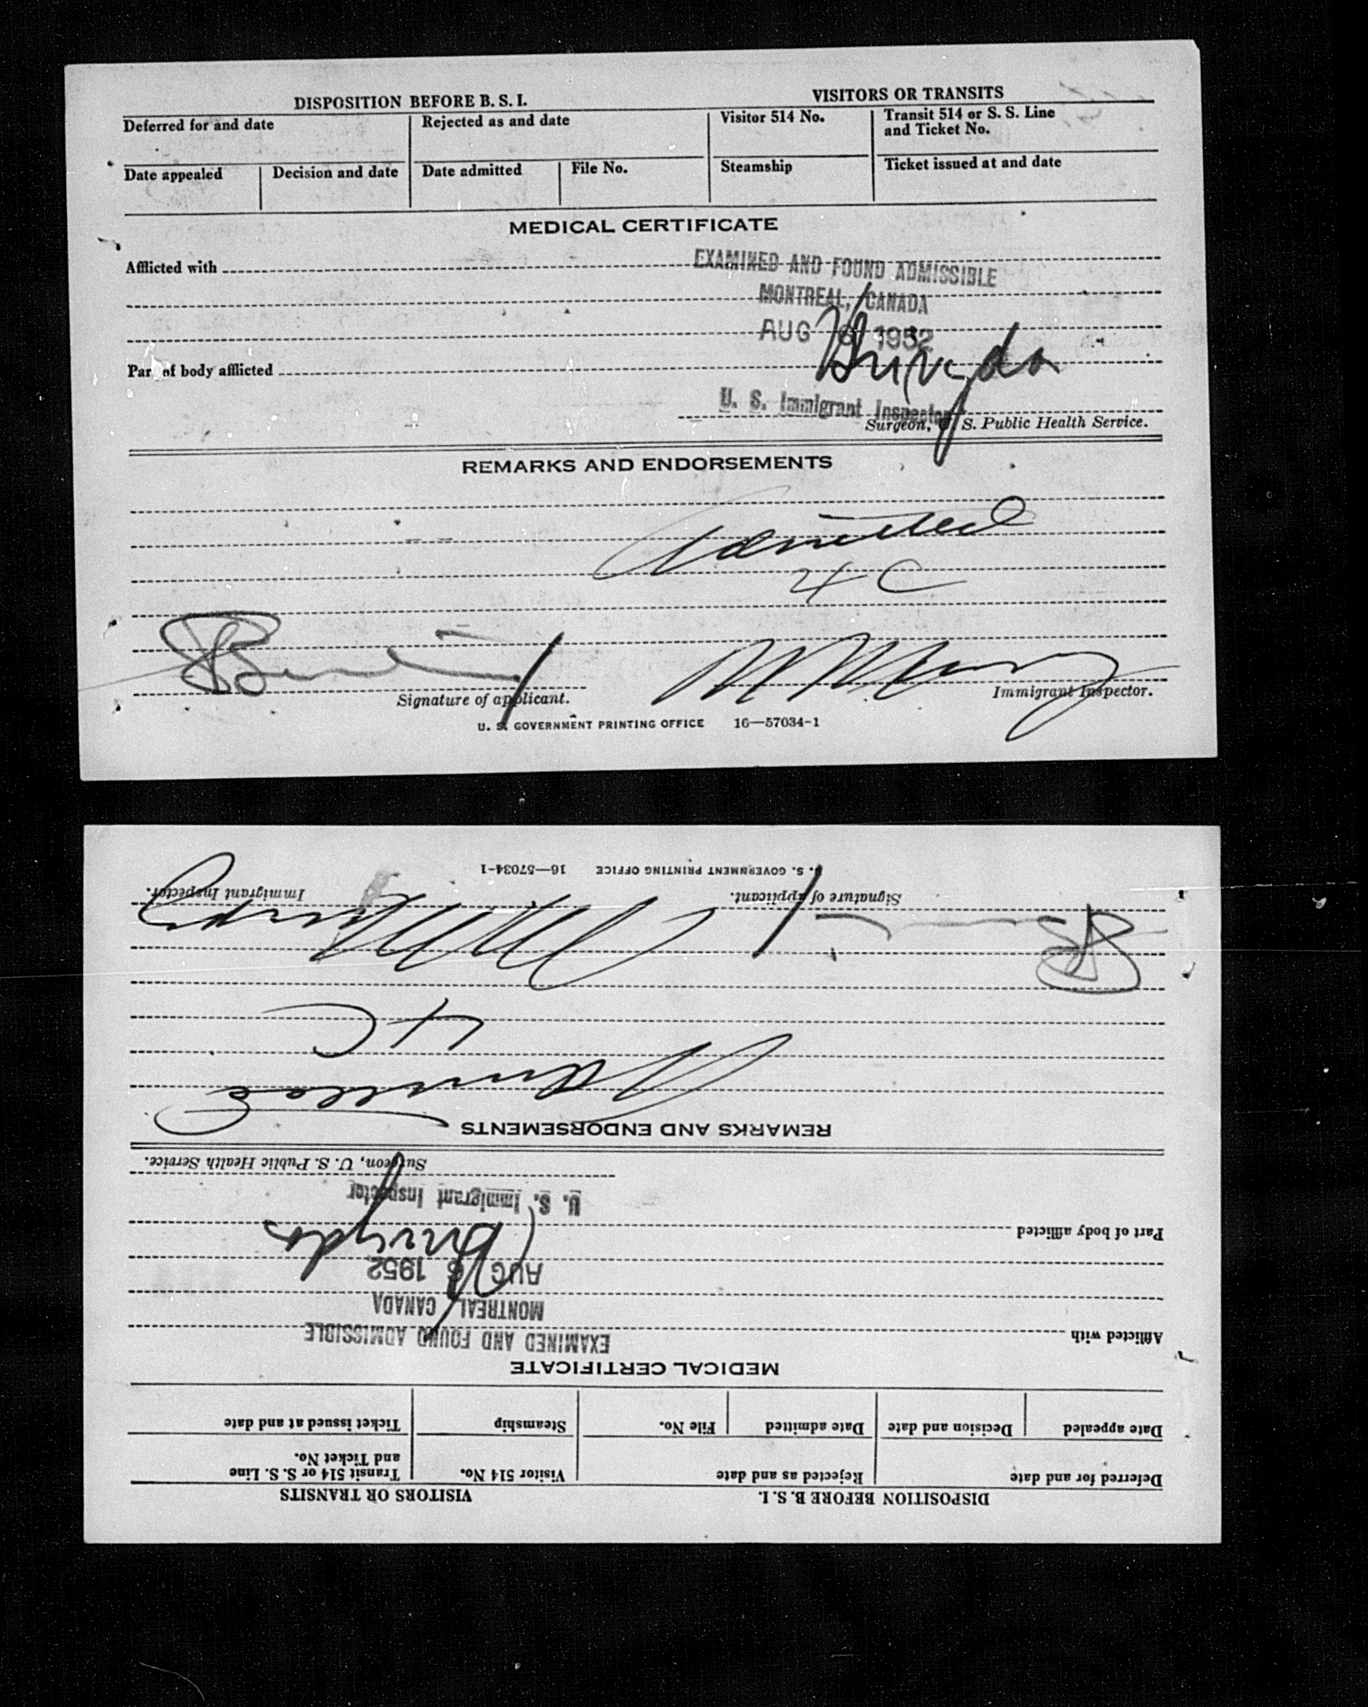 DISPOSITION BEFORE B. S. I. VISITORS OR TRANSITS
Deferred for and date Rejected as and date Visitor 514 No. Transit 514 or S. S. Line
and Ticket No.
Date appealed Decision and date Date admitted File No. Steamship Ticket issued at and date
MEDICAL CERTIFICATE
Afflicted with
EXAMINED AND FOUND ADMISSIBLE
MONTREAL, CANADA
AUG 6 1952
Part of body afflicted
U. S. Immigrant Inspector
Surgeon, U. S. Public Health Service.
REMARKS AND ENDORSEMENTS
Admitted
4 C
Signature of applicant. Immigrant Inspector.
U. S. GOVERNMENT PRINTING OFFICE 16—57034-1
DISPOSITION BEFORE B. S. I. VISITORS OR TRANSITS
Deferred for and date Rejected as and date Visitor 514 No. Transit 514 or S. S. Line
and Ticket No.
Date appealed Decision and date Date admitted File No. Steamship Ticket issued at and date
MEDICAL CERTIFICATE
Afflicted with
EXAMINED AND FOUND ADMISSIBLE
MONTREAL, CANADA
AUG 6 1952
Part of body afflicted
U. S. Immigrant Inspector
Surgeon, U. S. Public Health Service.
REMARKS AND ENDORSEMENTS
Admitted
4 C
Signature of applicant. Immigrant Inspector.
U. S. GOVERNMENT PRINTING OFFICE 16—57034-1